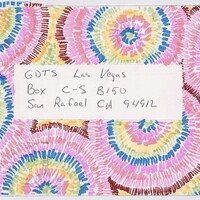 GDTS Las Vegas
Box C-S 8150
San Rafael CA 94912